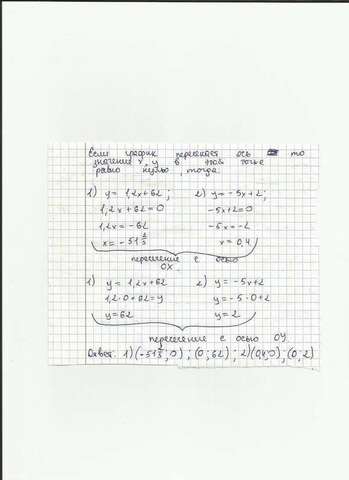 Если график пересекает ось то
значение x, y в этой точке
равно нулю, тогда
1) y = 1,2x+62; 2) y = -5x+2;
1,2x+62=0 -5x+2=0
1,2x=-62 -5x=-2
x=-51 2/3 x=0,4
пересечение с осью
OX.
1) y = 1,2x+62 2) y=-5x+2
1,2·0+62=y y=-5·0+2
y=62 y=2
пересечение с осью OY
Ответ. 1)(-51 2/3; 0); (0; 62); 2)(0,4;0); (0; 2)